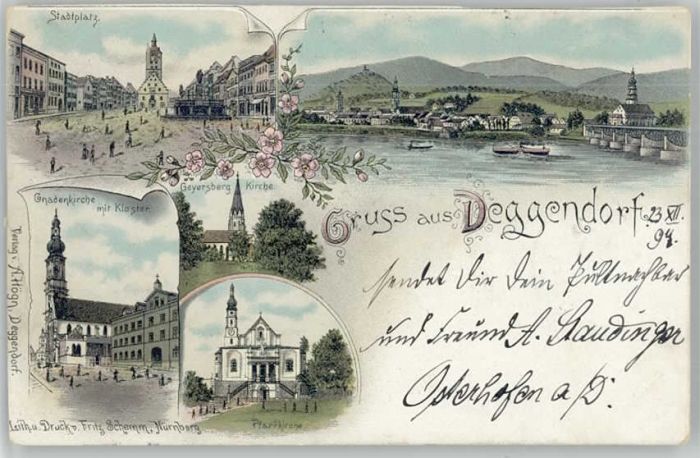 Stadtplatz.
Geyersberg Kirche.
Gnadenkirche
mit Kloster.
Gruss aus Deggendorf.
23 XII.
97.
sendet Dir Dein Pultnachbar
und Freund A. Staudinger
Osterhofen a/D.
Pfarrkirche
Verlag v. A. Högn, Deggendorf.
Lith. u. Druck v. Fritz Schemm, Nürnberg